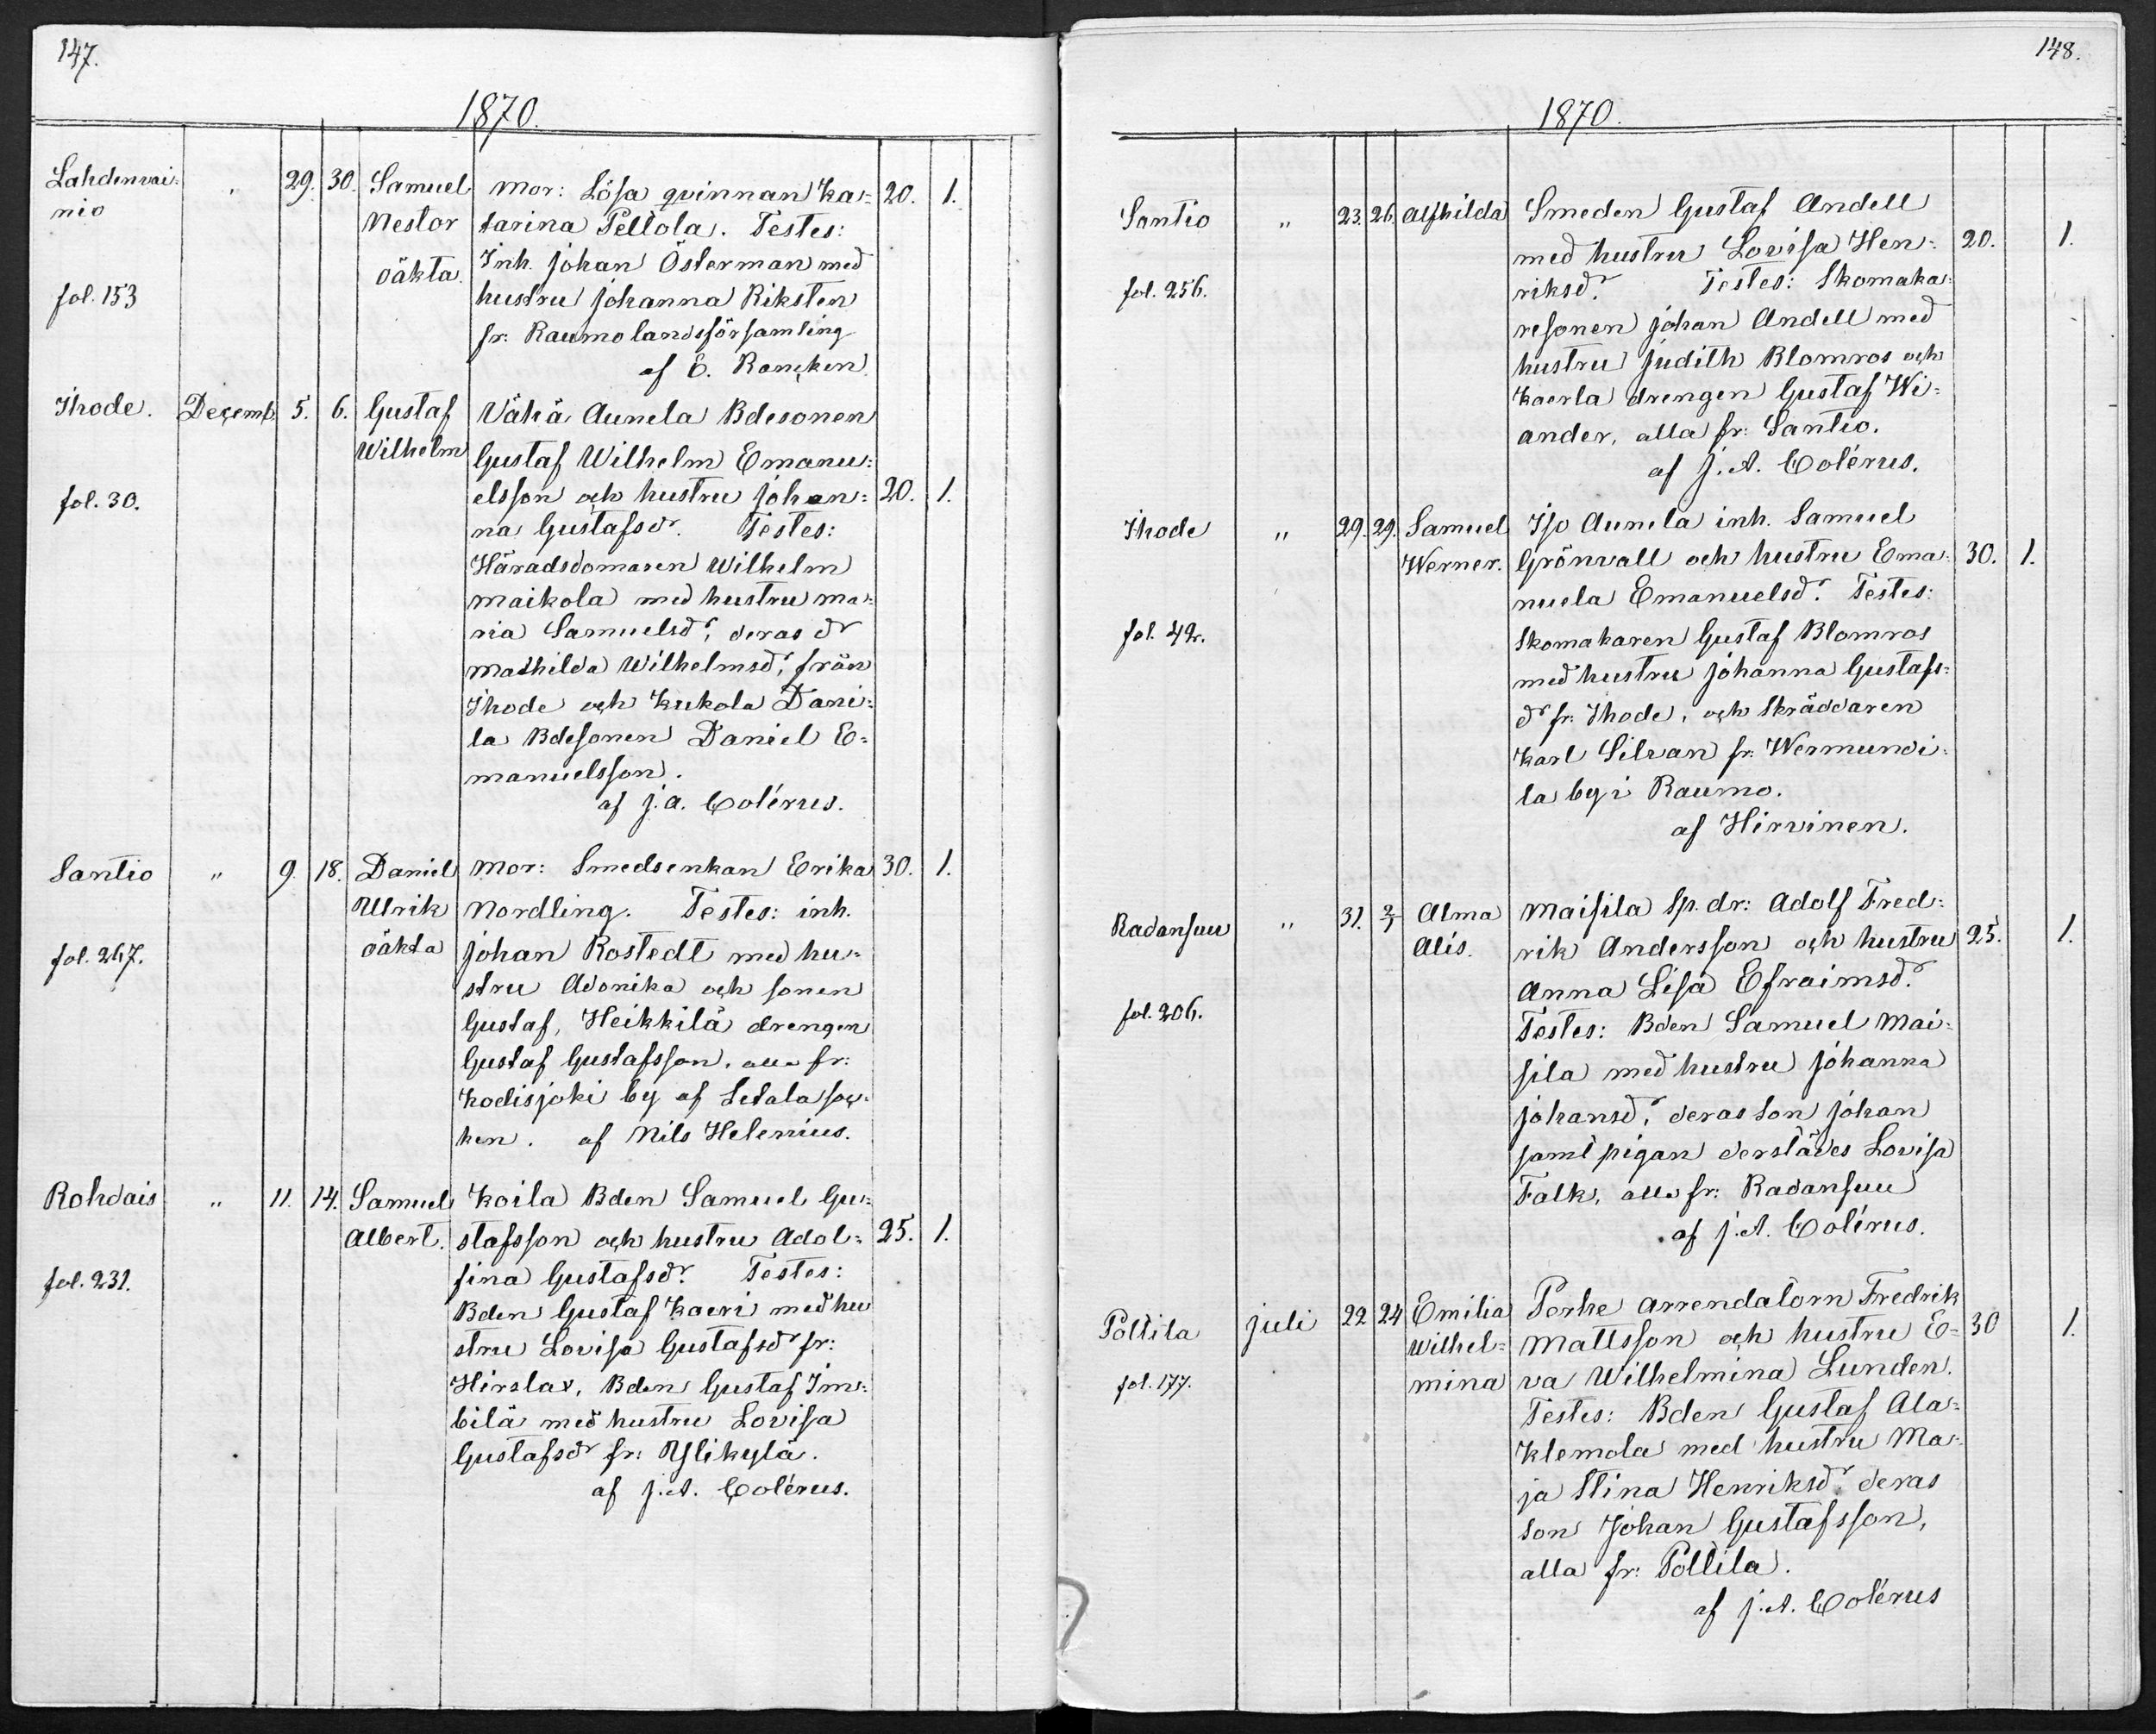 147.
1870.
Lahdenvai= " 29. 30. Samuel Mor: Lösa qvinnan Ka= 20. 1.
nio Nestor tarina Pellola. Testes:
oäkta. Inh. Johan Österman med
fol. 153 hustru Johanna Riksten
fr: Raumo landsförsamling
af E. Rancken
Ihode. Decemb. 5. 6. Gustaf Vähä Aunela Bdesonen
Wilhelm Gustaf Wilhelm Emanu=
fol. 30. elsson och hustru Johan= 20. 1.
na Gustafsdr. Testes:
Häradsdomaren Wilhelm
Maikola med hustru Ma=
ria Samuelsdr, deras dr
Mathilda Wilhelmsdr, från
Ihode och Kukola Dani=
la Bdesonen Daniel E=
manuelsson.
af J. A. Colérus.
Santio " 9. 18. Daniel Mor: Smedsenkan Erika 30. 1.
Ulrik Nordling. Testes: inh.
fol. 267. oäkta Johan Rostedt med hu=
stru Adonika och sonen
Gustaf, Heikkilä drengen
Gustaf Gustafsson, alla fr:
Kodisjoki by af Letala soc=
ken. af Nils Helenius.
Rohdais " 11. 14. Samuel Koila Bden Samuel Gu=
Albert. stafsson och hustru Adol= 25. 1.
fol. 231. fina Gustafsdr. Testes:
Bden Gustaf Kaeri med hu
stru Lovisa Gustafsdr fr:
Hirslax, Bden Gustaf Im=
bilä med hustru Lovisa
Gustafsdr fr: Ylikylä.
af J. A. Colérus.
148.
1870.
Santio " 23. 26. Alfhilda Smeden Gustaf Andell
med hustru Lovisa Hen= 20. 1.
fol. 256. riksdr. Testes: Skomaka=
resonen Johan Andell med
hustru Judith Blomros och
Kaerla drengen Gustaf Wi=
ander, alla fr: Santio.
af J. A. Colérus.
Ihode " 29. 29. Samuel Iso Aunela inh. Samuel
Werner. Grönvall och hustru Ema= 30. 1.
nuela Emanuelsdr. Testes:
fol. 42. Skomakaren Gustaf Blomros
med hustru Johanna Gustafs=
dr fr: Ihode, och Skräddaren
Karl Silvan fr: Wermundi=
la by i Raumo.
af Hirvinen.
Radansuu " 31. 2/1 Alma Maisila Sp. dr: Adolf Fred=
Alis. rik Andersson och hustru 25. 1.
Anna Lisa Efraimsdr.
fol. 206. Testes: Bden Samuel Mai=
sila med hustru Johanna
Johansdr, deras son Johan
samt pigan derstädes Lovisa
Falk, alla fr: Radansuu
af J. A. Colérus.
Pollila Juli 22 24 Emilia Perhe arrendatorn Fredrik
Wilhel= Mattsson och hustru E= 30 1.
fol. 177. mina va Wilhelmina Lunden.
Testes: Bden Gustaf Ala=
Klemola med hustru Ma=
ja Stina Henriksdr deras
son Johan Gustafsson,
alla fr: Pollila.
af J. A. Colérus